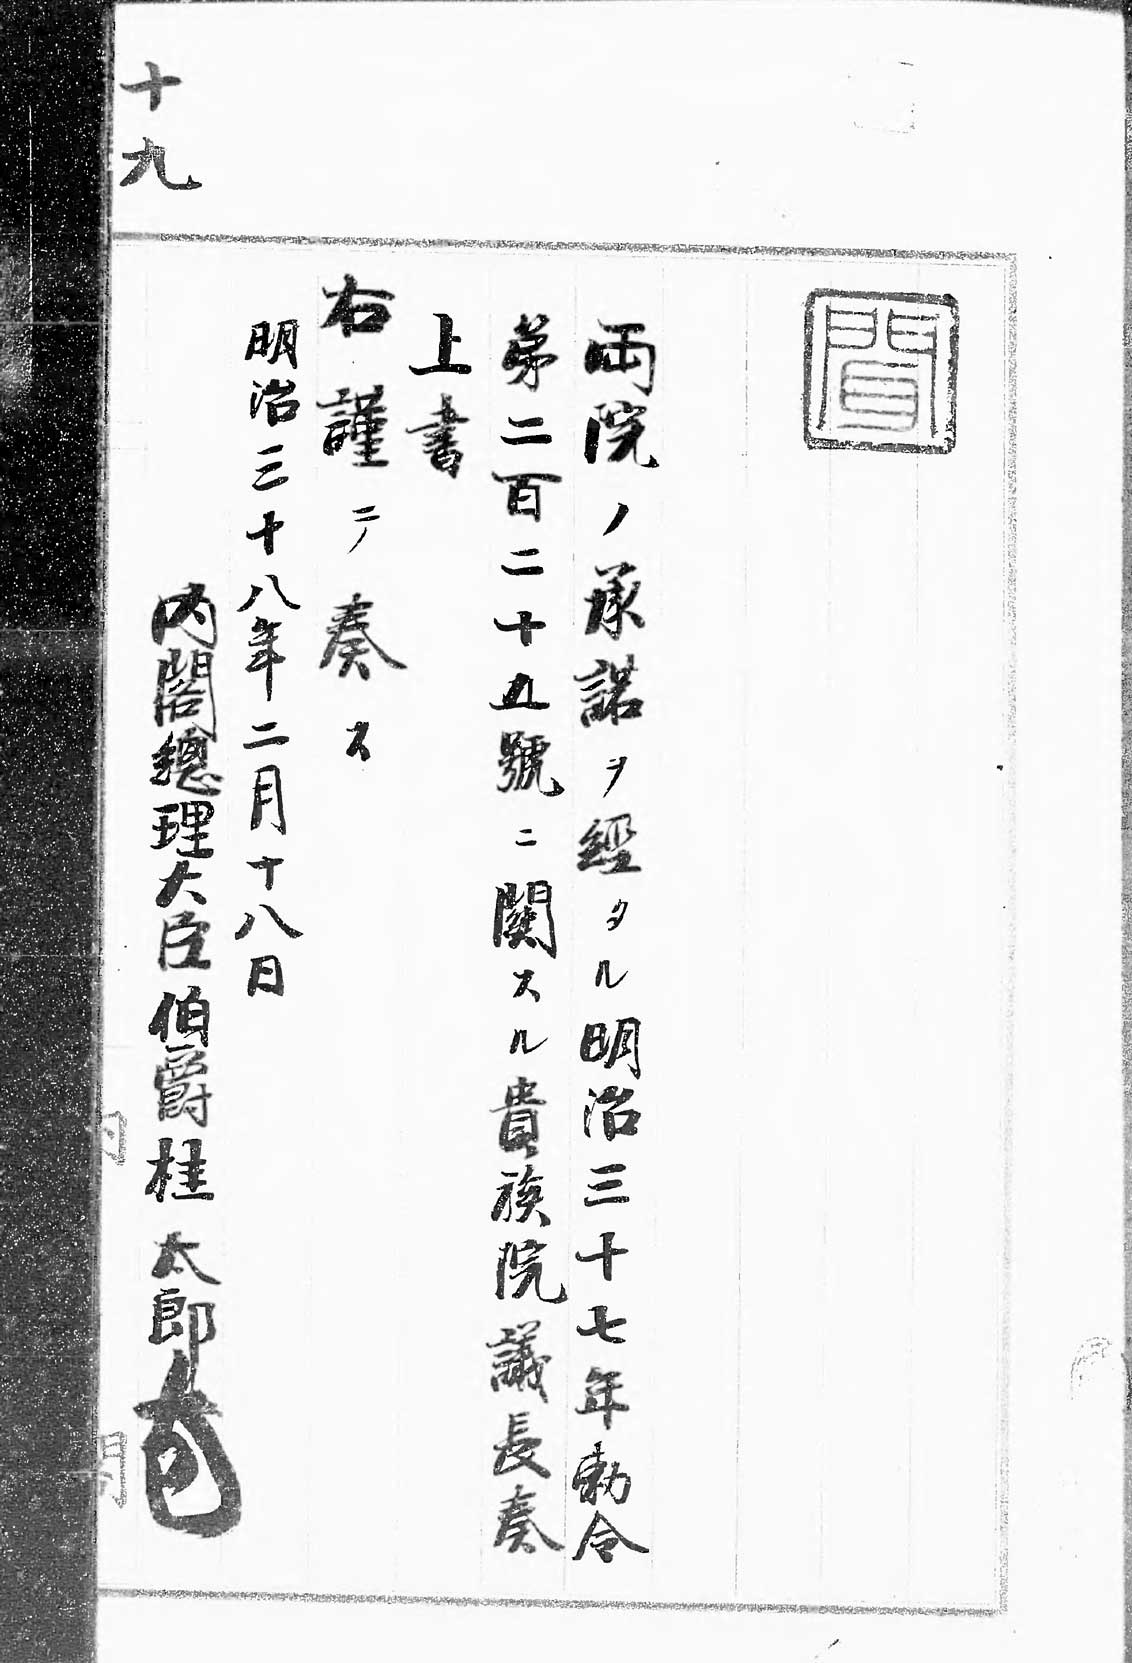 十九
聞
両院ノ承諾ヲ経タル明治三十七年勅令
第二百二十五號ニ關スル貴族院議長奏
上書
右謹テ奏ス
明治三十八年二月十八日
内閣總理大臣伯爵桂太郎